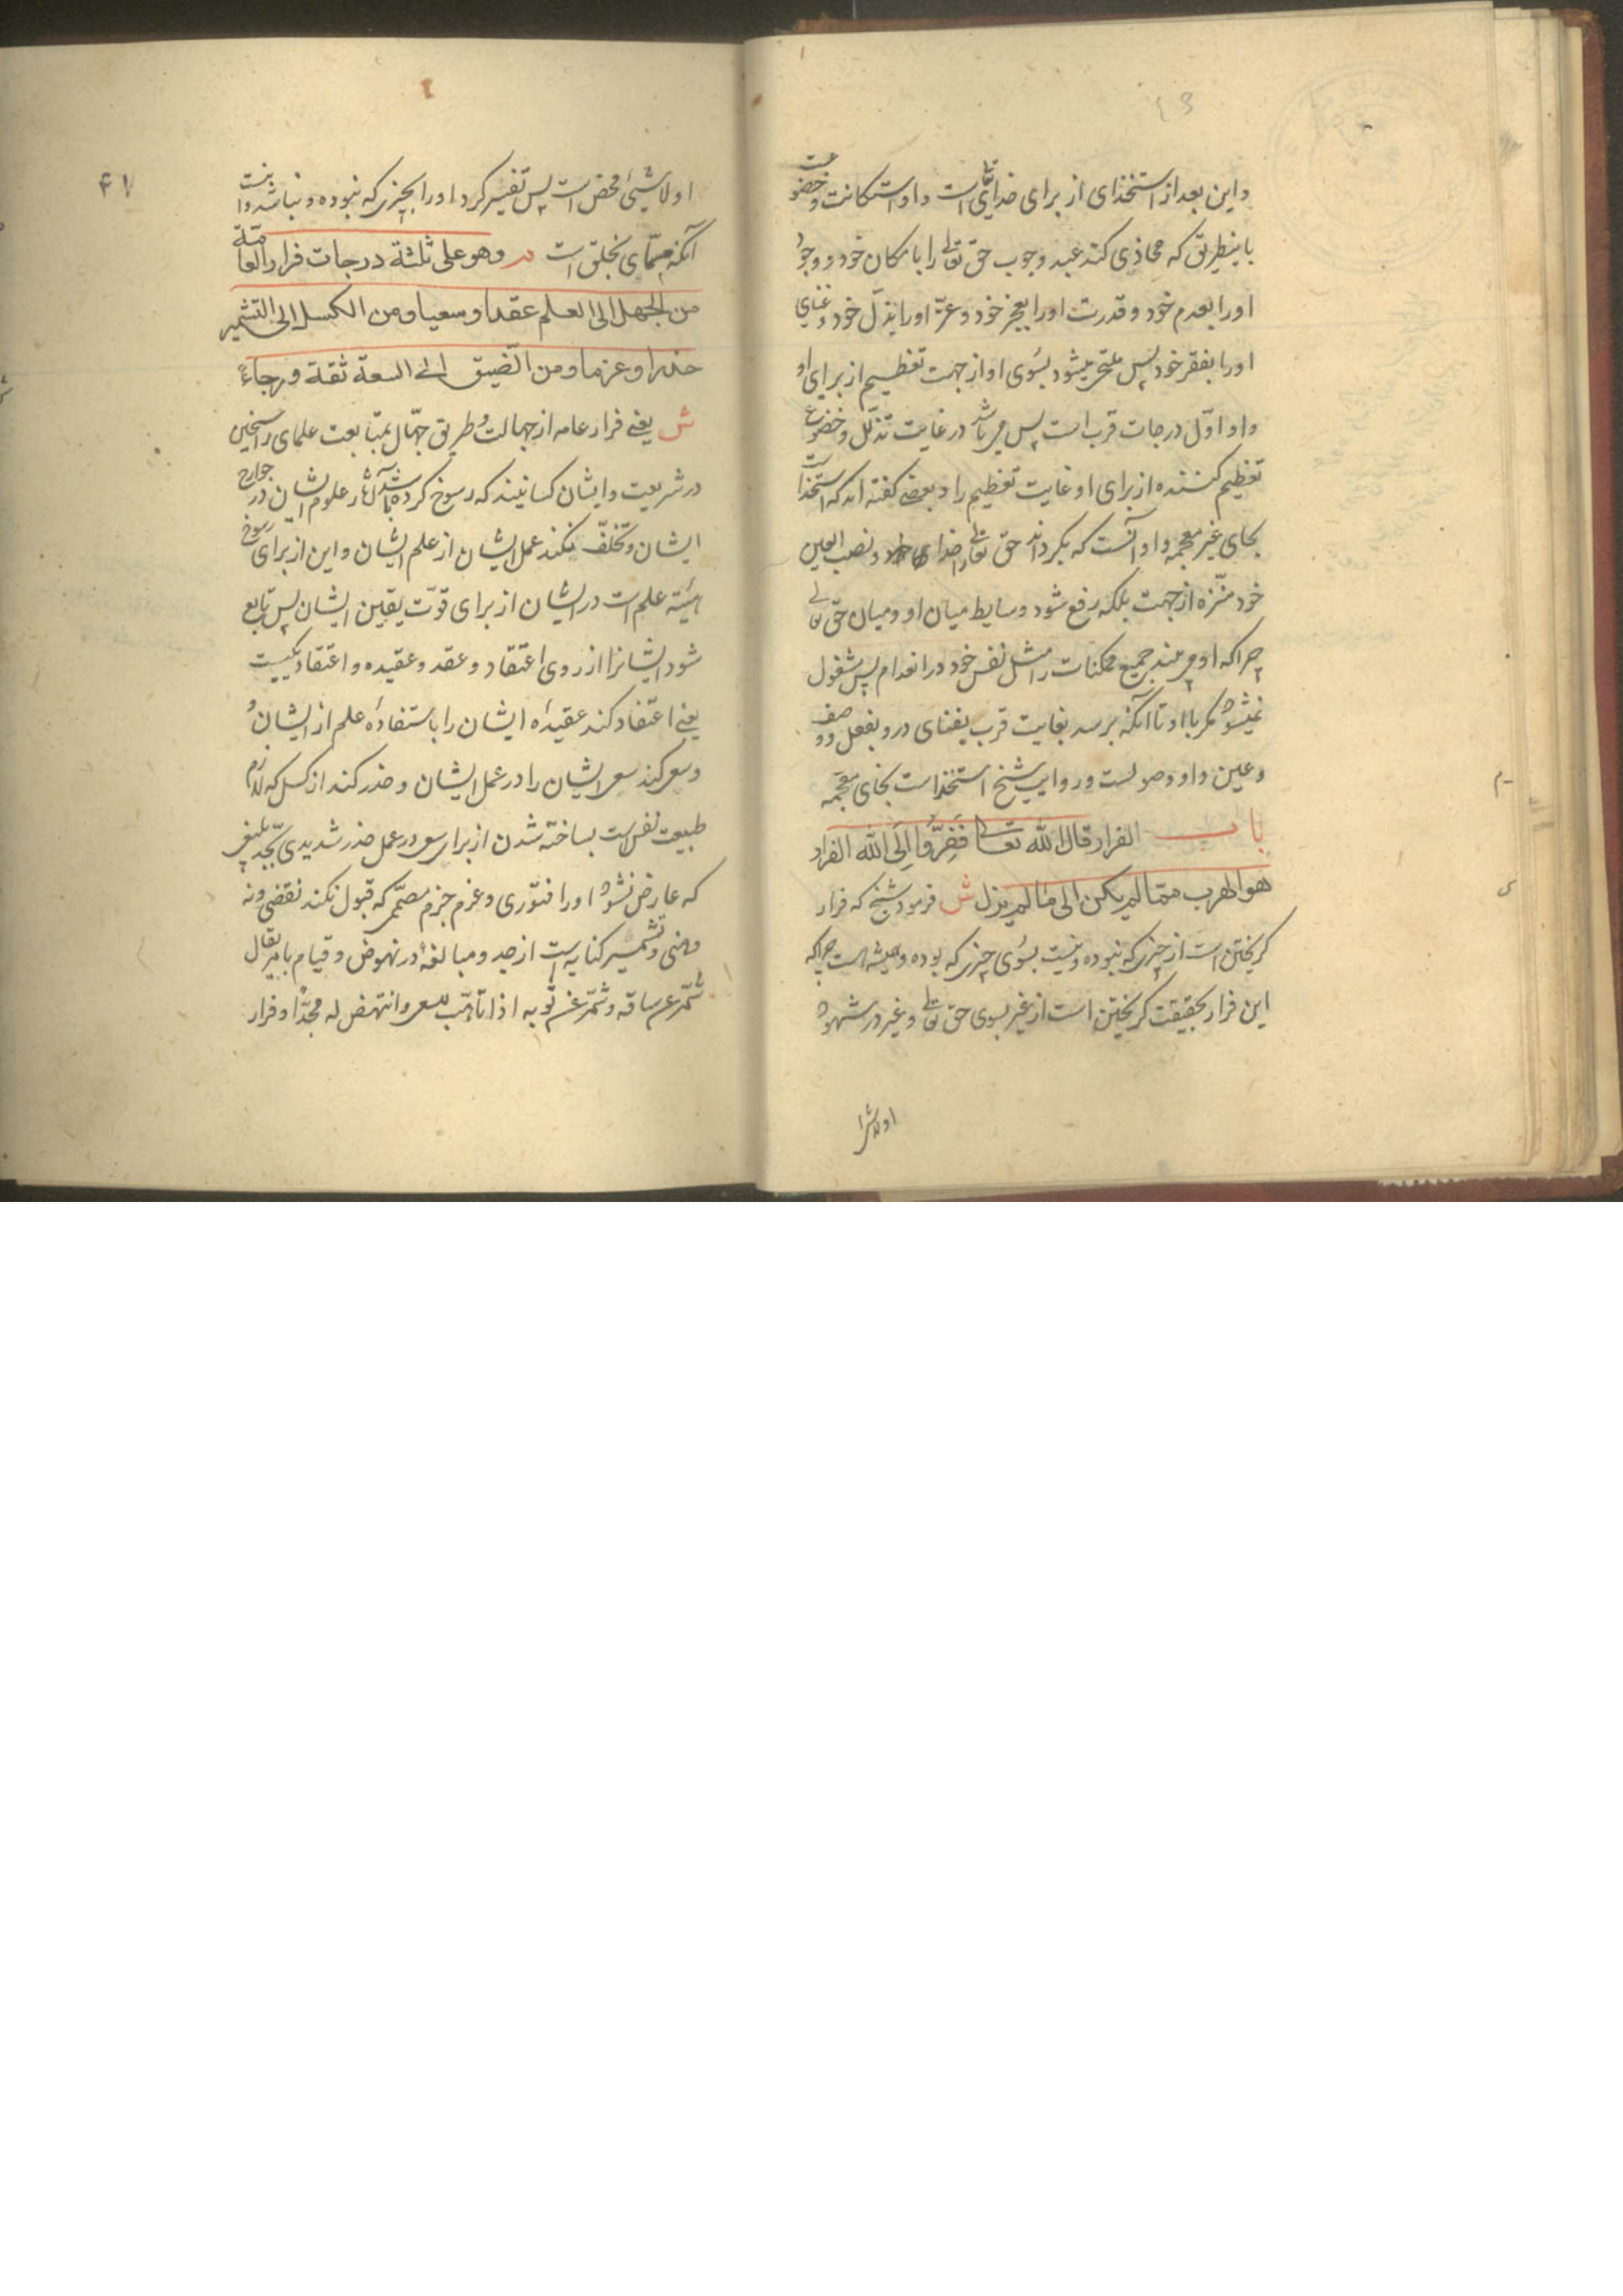 و این بعد از استخذای از برای خدای تعالی است و او استکانت و خضوعست
باینطریق که محاذی کند عبد وجوب حق تعالی را بامکان خود و وجود
اورا بعدم خود و قدرت اورا بعجز خود و عزّ اورا بذلّ خود و غنای
اورا بفقر خود پس ملتجی میشود بسوی او از جهت تعظیم از برای او
و او اوّل درجات قرب است پس می باشد در غایت تذلّل و خضوع
تعظیم کننده از برای او غایت تعظیم را و بعضی گفته اند که استخذا است
بحای غیر معجمه و او آنست که بگرداند حق تعالی را و نصب العین
خود منزّه از جهت بلکه رفع شود وسایط میان او و میان حق تعالی
چرا که او می بیند جمیع ممکنات را مثل نفس خود در انعدام پس مشغول
نمیشود مگر با او تا آنکه برسد بغایت قرب بفنای درو بفعل و وصف
و عین و او وصولست و روایت شیخ استخذا است بخای معجمه
باب الفرار قال الله تعالی فَفِرُّوا اِلَی الله الفرار
هو الهرب ممّا لم یکن الی ما لم یزل ش فرمود شیخ که فرار
گریختن است از چیزی که نبوده و نیست بسوی چیزی که بوده و همیشه است چراکه
این فرار بحقیقت گریختن است از غیر بسوی حق تعالی و غیر در شهود
او لاشئ
۴۷
او لاشیئ محض است پس تفسیر کرد اورا بچیزی که نبوده و نباشد و نیست
آنکه مسمّای بخلق است م و هو علی ثلثة درجات فرار العامّة
من الجهل الی العلم عقدا و سعیا و من الکسل الی التشمیر
حذرا و عزما و من الضیق الی السعة ثقة و رجاءً
ش یعنی فرار عامه از جهالت و طریق جهّال بمتابعت علمای راسخین
در شریعت و ایشان کسانیند که رسوخ کرده باشد آثار علوم ایشان در جوارح
ایشان و تخلّف نکند عمل ایشان از علم ایشان و این از برای رسوخ
هیئة علم است در ایشان از برای قوّت یقین ایشان پس تابع
شود ایشانرا از روی اعتقاد و عقد و عقیده و اعتقاد یکیست
یعنی اعتقاد کند عقیدهٔ ایشان را باستفادهٔ علم از ایشان و
و سعی کند سعی ایشان را در عمل ایشان و حذر کند از کسل که لازم
طبیعت نفس است بساخته شدن از برای سعی در عمل حذر شدیدی بجدّ بلیغی
که عارض نشود اورا فتوری و عزم جزم مصمّمی که قبول نکند نقضی و نه
وهنی و تشمیر کنایه است از جد و مبالغه در نهوض و قیام بامر یقال
شمّر عن ساقه و شمّر عن ثوبه اذا تأهّب للسعی و انتهض له مجدّا و فرار